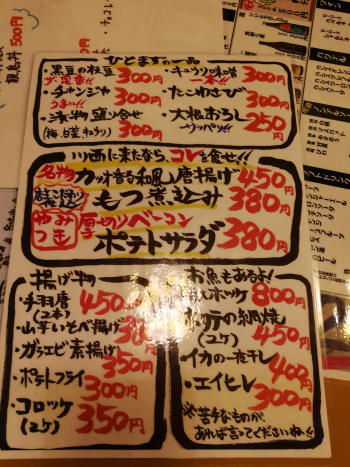 ひとまずの一品
・黒豆の枝豆 300円
ド定番!!
・チャンジャ 300円
うまい!!
・漬物盛り合せ 300円
(梅、白菜、キュウリ)
・キュウリ味噌 300円
一本!!
・たこわさび 300円
・大根おろし 250円
サッパリ!!
川西に来たなら、コレを食せ!!
名物 カツオ香る和風唐揚げ 450円
もつ煮込み 380円
ゆみつき 厚切りベーコン
ポテトサラダ 380円
揚げ物
・手羽唐 450円
(2本)
・山芋いそべ揚げ
・ガラエビ素揚げ 350円
・ポテトフライ 300円
・コロッケ 350円
(2ケ)
お魚もあるよ!
ホッケ 800円
ホタテの網焼 450円
(2ケ)
・イカの一夜干し 400円
・エイヒレ 300円
※苦手なものが、
あれば言ってくださいね〜!!